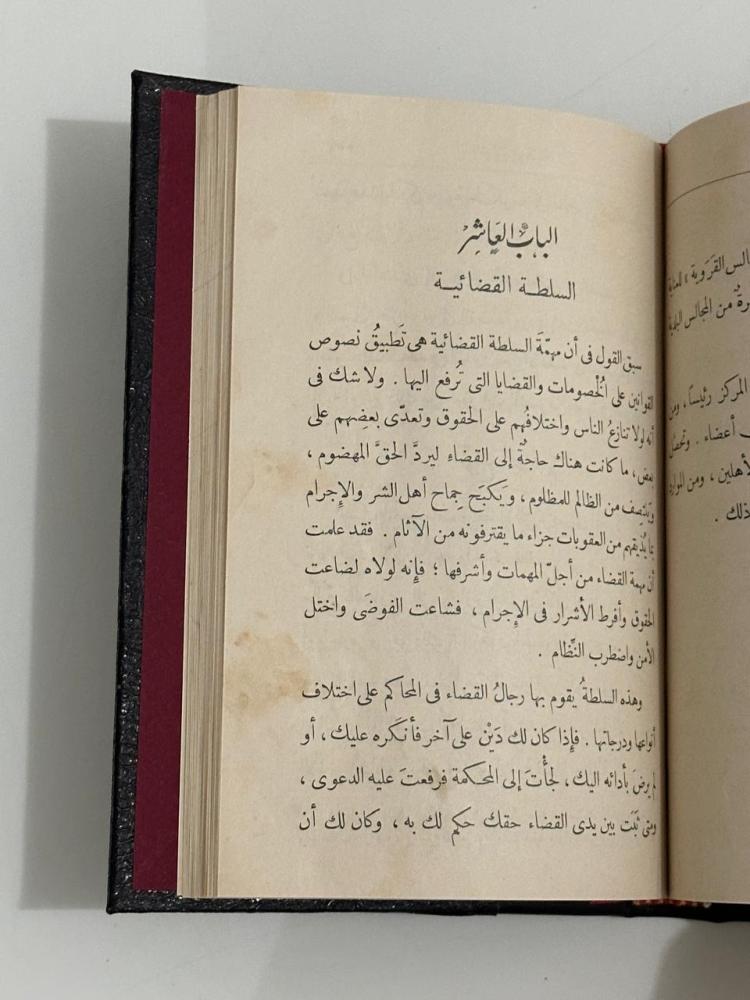 الباب العاشر
السلطة القضائية
سبق القول فى أن مهمّةَ السلطة القضائية هى تَطبيقُ نصوص
القوانين على الخُصومات والقضايا التى تُرفع اليها . ولا شك فى
أنه لولا تنازعُ الناس واختلافُهم على الحقوق وتعدّى بعضِهم على
بعض، ما كانت هناك حاجةٌ إلى القضاءِ ليردَّ الحقَّ المهضوم ،
ويَنتصِف من الظالم للمظلوم ، ويَكبَح جِماح أهل الشر والإجرام
بما يُذيقهم من العقوبات جزاء ما يقترفونه من الآثام . فقد علمت
أن مهمة القضاء من أجلّ المهمات وأشرفها ؛ فإنه لولاه لضاعت
الحقوق وأفرط الأشرار فى الإجرام ، فشاعت الفوضَى واختل
الأمن واضطرب النِّظام .
وهذه السلطةُ يقوم بها رجالُ القضاء فى المحاكم على اختلاف
أنواعها ودرجاتها . فإذا كان لك دَيْن على آخر فأنكَره عليك ، أو
لم يرضَ بأدائه اليك ، لجأْتَ إلى المحكمة فرفعتَ عليه الدعوى ،
ومتى ثبَتَ بين يدى القضاء حقك حكم لك به ، وكان لك أن
الس القَرَوية » للعناية
رةٌ من المجالس البلدية
المركز رئيسًا ، ومن
أعضاء . وتحصل
لأهلين ، ومن الموارد
ذلك .